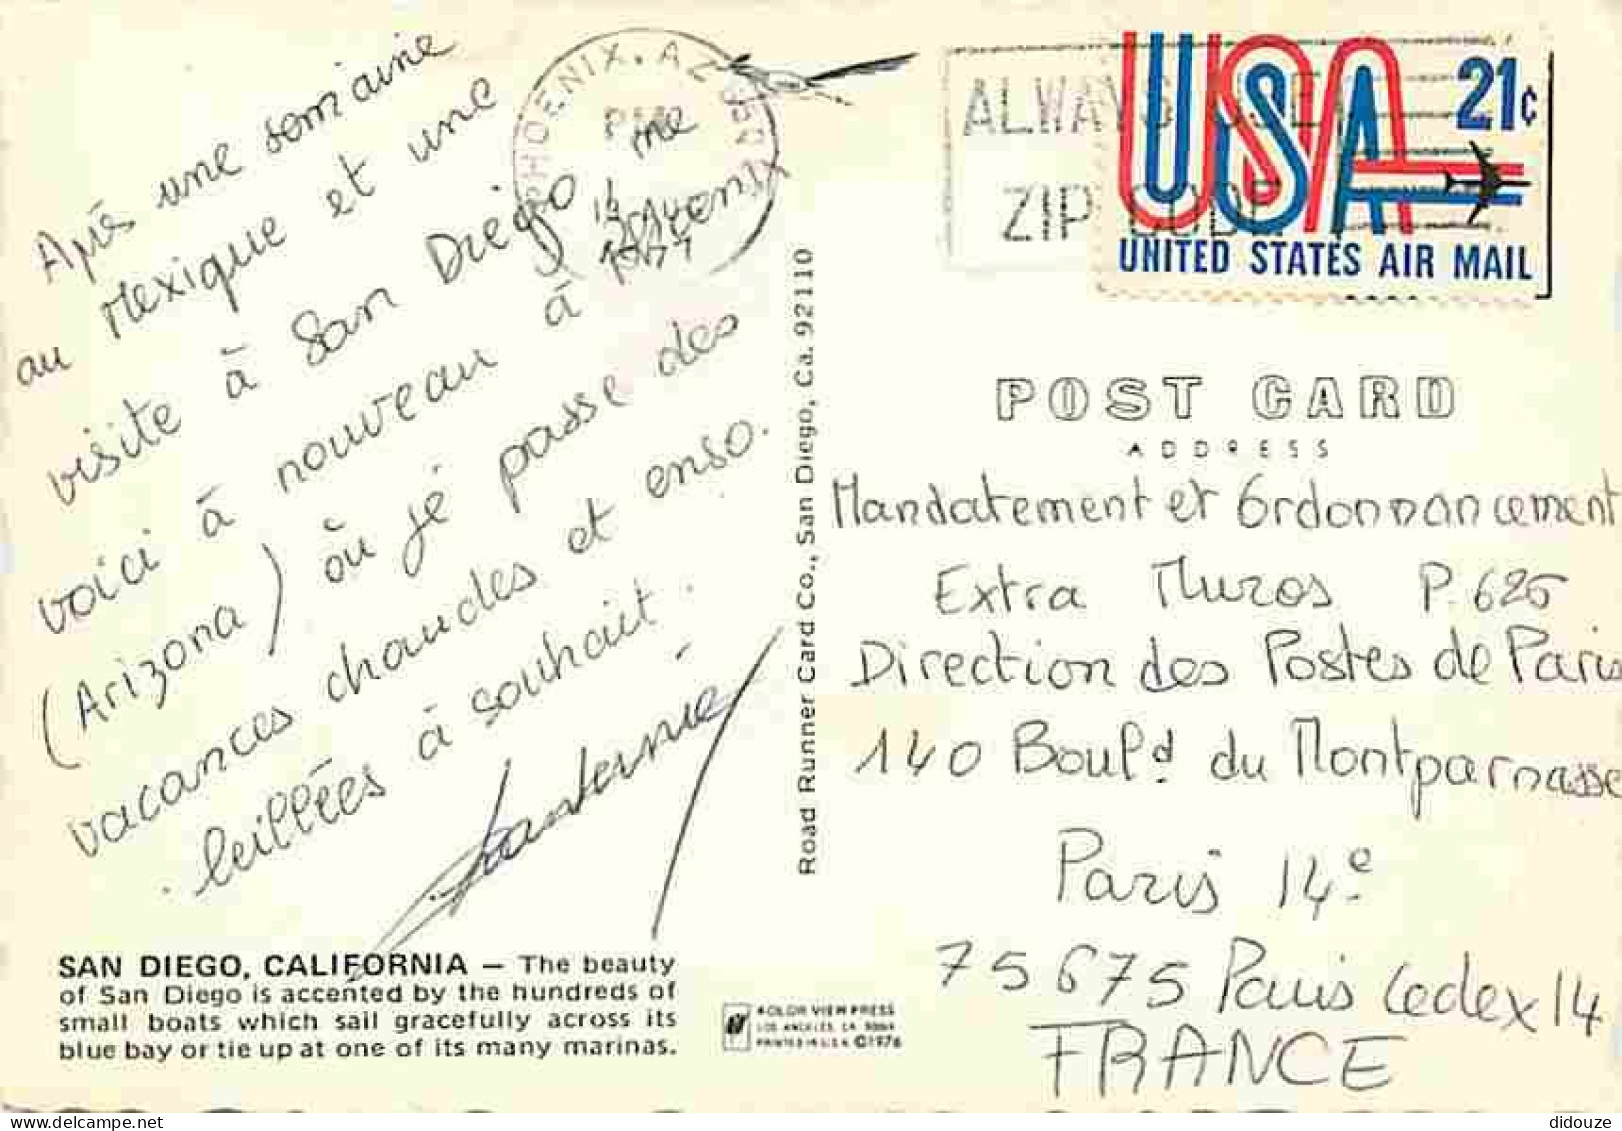 Après une semaine
au Mexique et une
visite à San Diego me
voici à nouveau à Phoenix
(Arizona) où je passe des
vacances chaudes et enso.
leillées à souhait.
SAN DIEGO, CALIFORNIA — The beauty
of San Diego is accented by the hundreds of
small boats which sail gracefully across its
blue bay or tie up at one of its many marinas.
KOLOR VIEW PRESS
LOS ANGELES, CA.
PRINTED IN U.S.A. ©1976
Road Runner Card Co., San Diego, Ca. 92110
PHOENIX, AZ
PM
1977
ALWAYS USE
ZIP CODE
USA 21c
UNITED STATES AIR MAIL
POST CARD
ADDRESS
Mandatement et Ordonnancement
Extra Muros P.625
Direction des Postes de Paris
140 Boul.d du Montparnasse
Paris 14e
75675 Paris Cedex 14
FRANCE
didouze